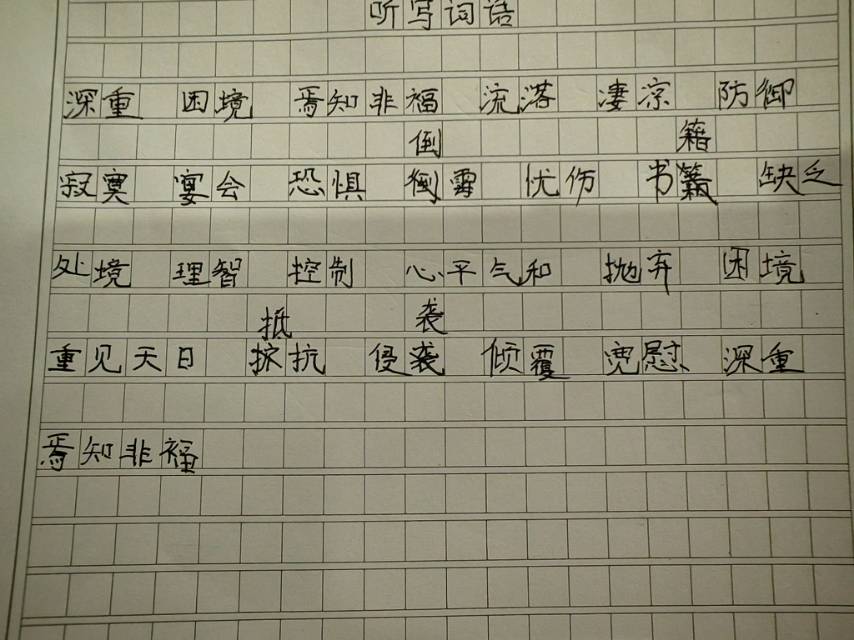 听写词语
深重 困境 焉知非福 流落 凄凉 防御
倒 籍
寂寞 宴会 恐惧 倒霉 忧伤 书籍 缺乏
处境 理智 控制 心平气和 抛弃 困境
抵 袭
重见天日 抵抗 侵袭 倾覆 宽慰 深重
焉知非福